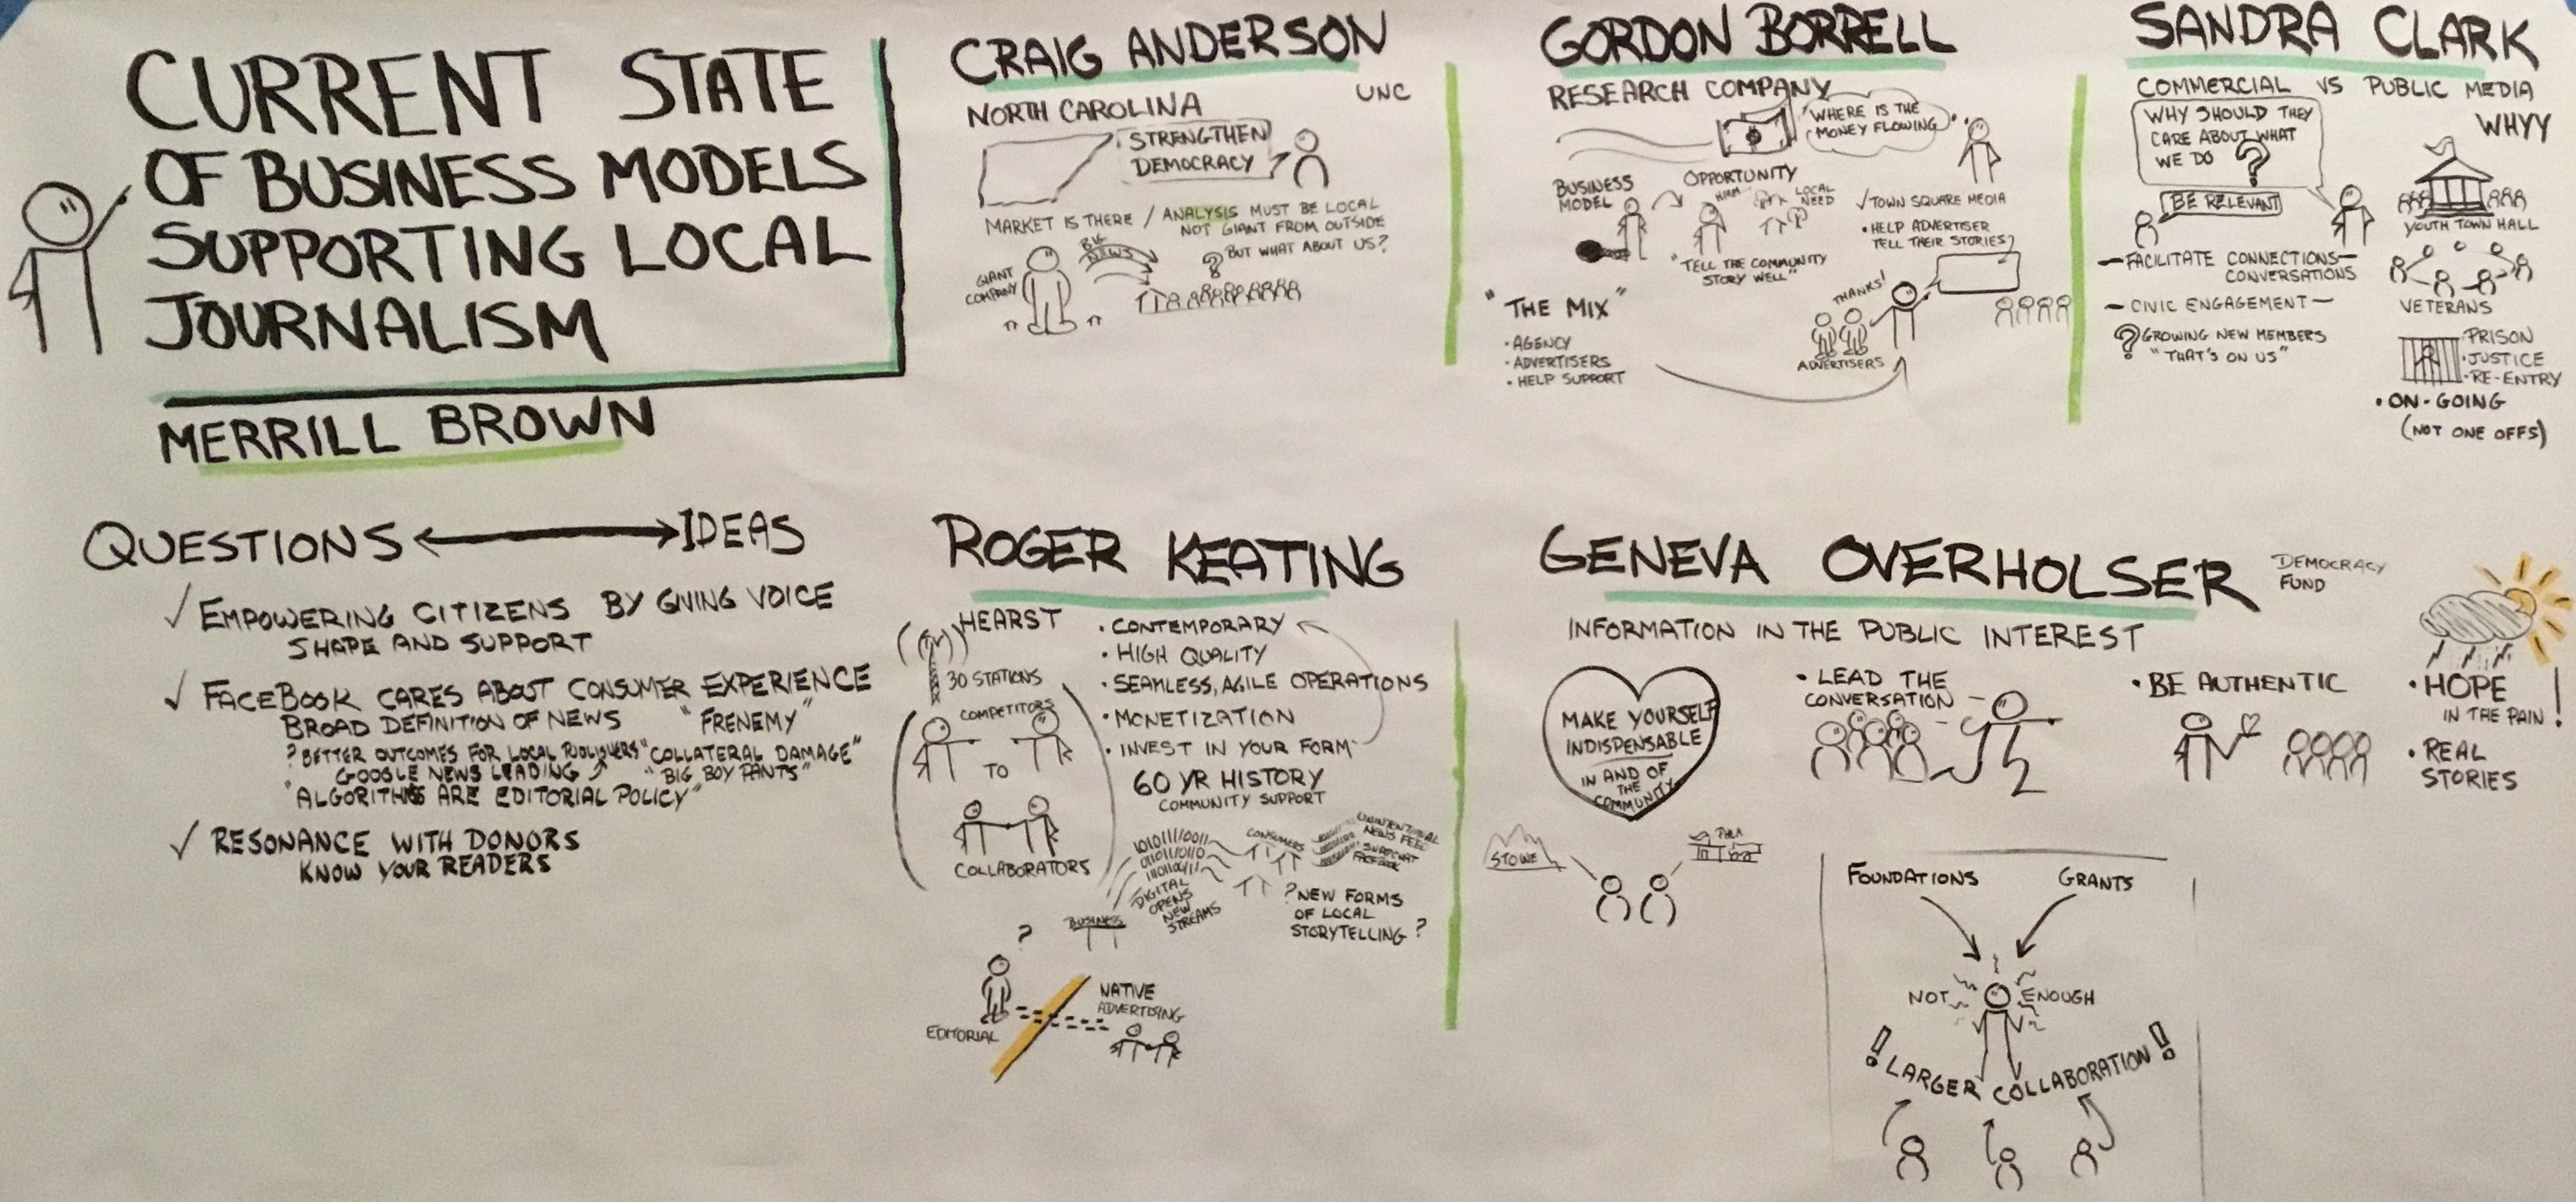 CURRENT STATE
OF BUSINESS MODELS
SUPPORTING LOCAL
JOURNALISM
MERRILL BROWN
CRAIG ANDERSON
UNC
NORTH CAROLINA
STRENGTHEN
DEMOCRACY
MARKET IS THERE / ANALYSIS MUST BE LOCAL
NOT GIANT FROM OUTSIDE
BIG
NEWS
? BUT WHAT ABOUT US?
GIANT
COMPANY
GORDON BORRELL
RESEARCH COMPANY
$
WHERE IS THE
MONEY FLOWING
BUSINESS
MODEL
OPPORTUNITY
HMM
LOCAL
NEED
✓ TOWN SQUARE MEDIA
• HELP ADVERTISER
TELL THEIR STORIES
"TELL THE COMMUNITY
STORY WELL"
"THE MIX"
• AGENCY
• ADVERTISERS
• HELP SUPPORT
THANKS!
ADVERTISERS
SANDRA CLARK
COMMERCIAL VS PUBLIC MEDIA
WHYY
WHY SHOULD THEY
CARE ABOUT WHAT
WE DO ?
BE RELEVANT
YOUTH TOWN HALL
— FACILITATE CONNECTIONS —
CONVERSATIONS
— CIVIC ENGAGEMENT —
VETERANS
? GROWING NEW MEMBERS
"THAT'S ON US"
• PRISON
• JUSTICE
• RE-ENTRY
• ON-GOING
(NOT ONE OFFS)
QUESTIONS IDEAS
✓ EMPOWERING CITIZENS BY GIVING VOICE
SHAPE AND SUPPORT
✓ FACEBOOK CARES ABOUT CONSUMER EXPERIENCE
BROAD DEFINITION OF NEWS "FRENEMY"
? BETTER OUTCOMES FOR LOCAL PUBLISHERS "COLLATERAL DAMAGE"
GOOGLE NEWS LEADING "BIG BOY PANTS"
"ALGORITHMS ARE EDITORIAL POLICY"
✓ RESONANCE WITH DONORS
KNOW YOUR READERS
ROGER KEATING
HEARST
(TV)
30 STATIONS
COMPETITORS
TO
COLLABORATORS
• CONTEMPORARY
• HIGH QUALITY
• SEAMLESS, AGILE OPERATIONS
• MONETIZATION
• INVEST IN YOUR FORM
60 YR HISTORY
COMMUNITY SUPPORT
DIGITAL
OPENS
NEW
STREAMS
BUSINESS
CONSUMERS
UNINTENTIONAL
NEWS FEED
SNAPCHAT
FACEBOOK
? NEW FORMS
OF LOCAL
STORYTELLING ?
?
EDITORIAL
NATIVE
ADVERTISING
GENEVA OVERHOLSER
DEMOCRACY
FUND
INFORMATION IN THE PUBLIC INTEREST
MAKE YOURSELF
INDISPENSABLE
IN AND OF
THE
COMMUNITY
• LEAD THE
CONVERSATION
• BE AUTHENTIC
• HOPE
IN THE PAIN !
• REAL
STORIES
STOWE
PHLA
FOUNDATIONS GRANTS
NOT ENOUGH
! LARGER COLLABORATION !